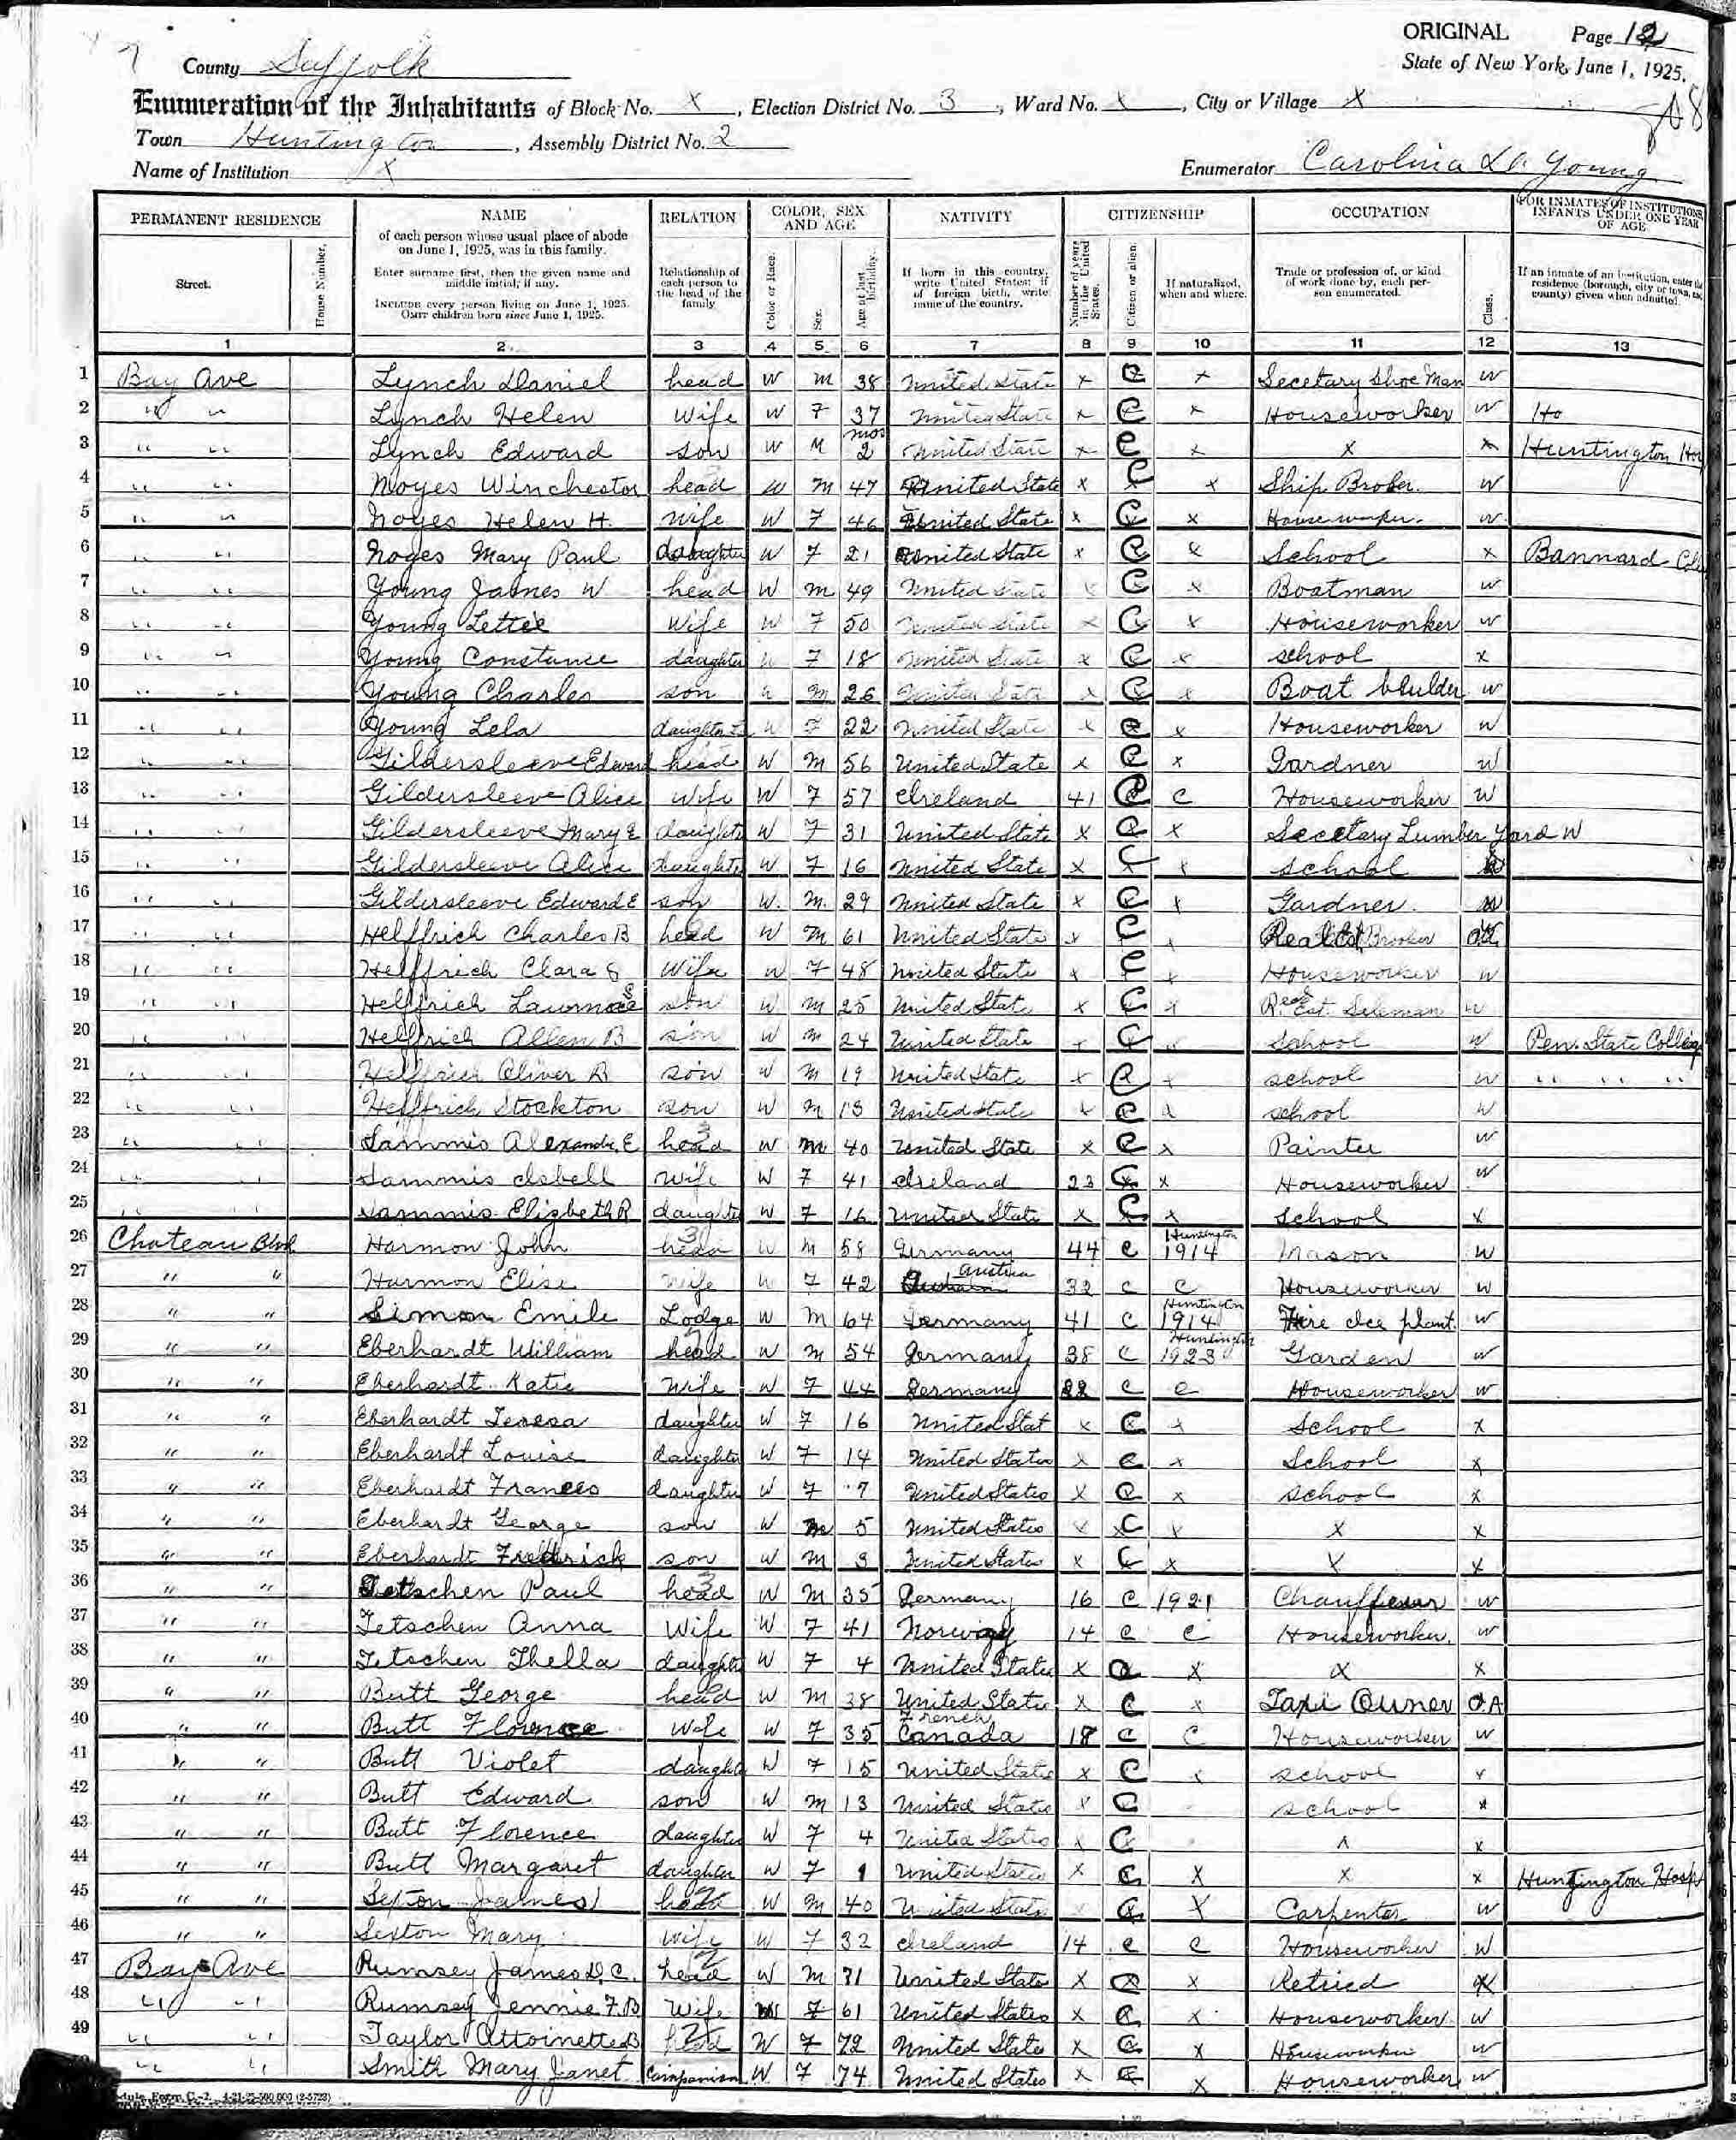 ORIGINAL Page 12
County Suffolk State of New York, June 1, 1925.
Enumeration of the Inhabitants of Block No. X, Election District No. 3, Ward No. X, City or Village X
Town Huntington, Assembly District No. 2
Name of Institution X Enumerator Carolina Young
PERMANENT RESIDENCE NAME RELATION COLOR, SEX AND AGE NATIVITY CITIZENSHIP OCCUPATION FOR INMATES OF INSTITUTIONS INFANTS UNDER ONE YEAR OF AGE
Street. House Number. of each person whose usual place of abode on June 1, 1925, was in this family. Enter surname first, then the given name and middle initial, if any. INCLUDE every person living on June 1, 1925. OMIT children born since June 1, 1925. Relationship of each person to the head of the family Color or Race. Sex. Age at last birthday. If born in this country, write United States; if of foreign birth, write name of the country. Number of years in the United States. Citizen or alien. If naturalized, when and where. Trade or profession of, or kind of work done by, each person enumerated. Class. If an inmate of an institution, enter the residence (borough, city or town, and county) given when admitted.
1 2 3 4 5 6 7 8 9 10 11 12 13
1 Bay Ave Lynch Daniel head W m 38 United State x C x Secetary Shoe Man W
2 " " Lynch Helen Wife W F 37 United State x C x Houseworker W Ho
3 " " Lynch Edward son W M mos 2 United State x C x x x Huntington Hos
4 " " Noyes Winchester head W m 47 United State x C x Ship Broker W
5 " " Noyes Helen H. Wife W F 46 United State x C x Houseworker W
6 " " Noyes Mary Paul daughter W F 21 United State x C x School x Bannard Coll
7 " " Young James W head W m 49 United State x C x Boatman W
8 " " Young Lettie Wife W F 50 United State x C x Houseworker W
9 " " Young Constance daughter W F 18 United State x C x school x
10 " " Young Charles son W m 26 United State x C x Boat builder W
11 " " Young Lela daughter W F 22 United State x C x Houseworker W
12 " " Gildersleeve Edward head W m 56 United State x C x Gardner W
13 " " Gildersleeve Alice Wife W F 57 Ireland 41 C C Houseworker W
14 " " Gildersleeve Mary E daughter W F 31 United State x C x Secetary Lumber Yard W
15 " " Gildersleeve Alice daughter W F 16 United State x C x school
16 " " Gildersleeve Edward E son W. m. 29 United State x C x Gardner W
17 " " Helffrich Charles B head W m 61 United State x C x Brooker
18 " " Helffrich Clara S Wife W F 48 United State x C x Houseworker W
19 " " Helffrich son W m 25 United State x C x Real Est. W
20 " " Helffrich Allen B son W m 24 United State x C School W Pen. State College
21 " " Helffrich Oliver B son W m 19 United State x C x school W " " "
22 " " Helffrich Stockton son W m 13 United State x C x school W
23 " " Sammis Alexander E head W m 40 United State x C x Painter W
24 " " Sammis Isbell Wife W F 41 Ireland 23 C x Houseworker W
25 " " Sammis Elizbeth R daughter W F 16 United State x C x School x
26 Chateau Blvd Harmon John head W m 58 Germany 44 C Huntington 1914 Mason W
27 " " Harmon Elise Wife W F 42 Austria 32 C C Houseworker W
28 " " Simon Emile Lodge W m 64 Germany 41 C Huntington 1914 Fire Ice plant W
29 " " Eberhardt William head W m 54 Germany 38 C Huntington 1923 Garden W
30 " " Eberhardt Katie Wife W F 44 Germany 22 C C Houseworker W
31 " " Eberhardt Teresa daughter W F 16 United Stat x C x School x
32 " " Eberhardt Louise daughter W F 14 United States x C x School x
33 " " Eberhardt Frances daughter W F 7 United States x C x school x
34 " " Eberhardt George son W m 5 United States x C x x x
35 " " Eberhardt Frederick son W m 3 United States x C x x x
36 " " Tetschen Paul head W m 35 Germany 16 C 1921 Chauffeur W
37 " " Tetschen Anna Wife W F 41 Norway 14 C C Houseworker W
38 " " Tetschen Thella daughter W F 4 United States x C x x x
39 " " Butt George head W m 38 United States x C x Taxi Owner OA
40 " " Butt Florence Wife W F 35 French Canada 18 C C Houseworker W
41 " " Butt Violet daughter W F 15 United States x C x school x
42 " " Butt Edward son W m 13 United States x C school x
43 " " Butt Florence daughter W F 4 United States x C x x
44 " " Butt Margaret daughter W F 1 United States x C x x x Huntington Hosp
45 " " Sexton James head W m 40 United States C x Carpenter W
46 " " Sexton Mary Wife W F 32 Ireland 14 C C Houseworker W
47 Bay Ave Rumsey James D. C. head W m 71 United State x C x Retired x
48 " " Rumsey Jennie F. B Wife W F 61 United States x C x Houseworker W
49 " " Taylor Attoinette B head W F 72 United States x C x Houseworker W
" " Smith Mary Janet Companion W F 74 United States x C x Houseworker W
Form C-2. 4-21-25-500,000 (2-5723)